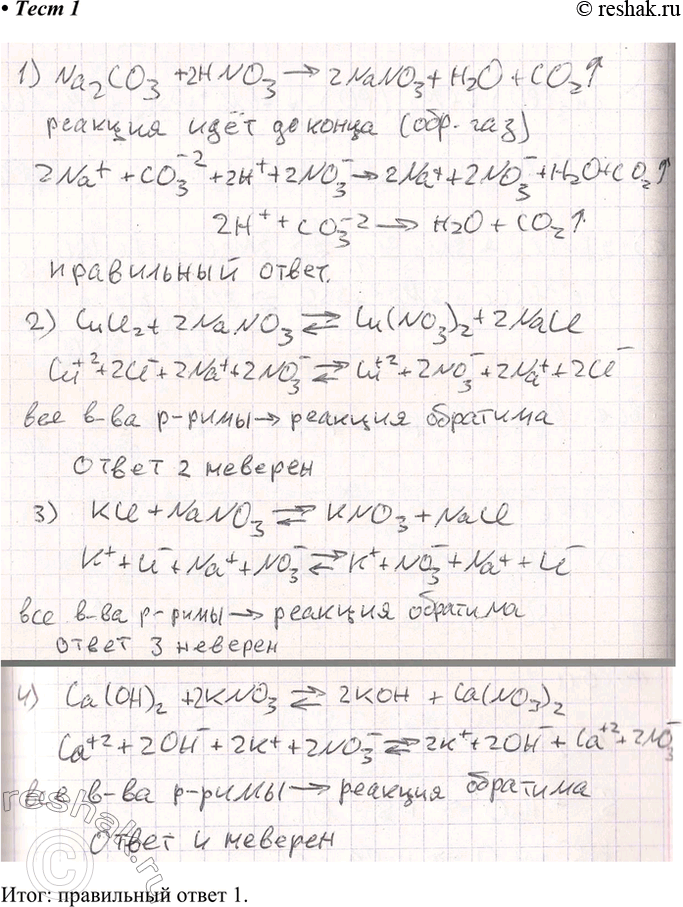 • Тест 1
© reshak.ru
1) Na₂CO₃ + 2HNO₃ → 2NaNO₃ + H₂O + CO₂↑
реакция идёт до конца (обр. газ)
2Na⁺ + CO₃⁻² + 2H⁺ + 2NO₃⁻ → 2Na⁺ + 2NO₃⁻ + H₂O + CO₂↑
2H⁺ + CO₃⁻² → H₂O + CO₂↑
правильный ответ.
2) CuCl₂ + 2NaNO₃ ⇄ Cu(NO₃)₂ + 2NaCl
Cu⁺² + 2Cl⁻ + 2Na⁺ + 2NO₃⁻ ⇄ Cu⁺² + 2NO₃⁻ + 2Na⁺ + 2Cl⁻
все в-ва р-римы → реакция обратима
ответ 2 неверен
3) KCl + NaNO₃ ⇄ KNO₃ + NaCl
K⁺ + Cl⁻ + Na⁺ + NO₃⁻ ⇄ K⁺ + NO₃⁻ + Na⁺ + Cl⁻
все в-ва р-римы → реакция обратима
ответ 3 неверен
4) Ca(OH)₂ + 2KNO₃ ⇄ 2KOH + Ca(NO₃)₂
Ca⁺² + 2OH⁻ + 2K⁺ + 2NO₃⁻ ⇄ 2K⁺ + 2OH⁻ + Ca⁺² + 2NO₃⁻
все в-ва р-римы → реакция обратима
ответ 4 неверен
reshak.ru
Итог: правильный ответ 1.